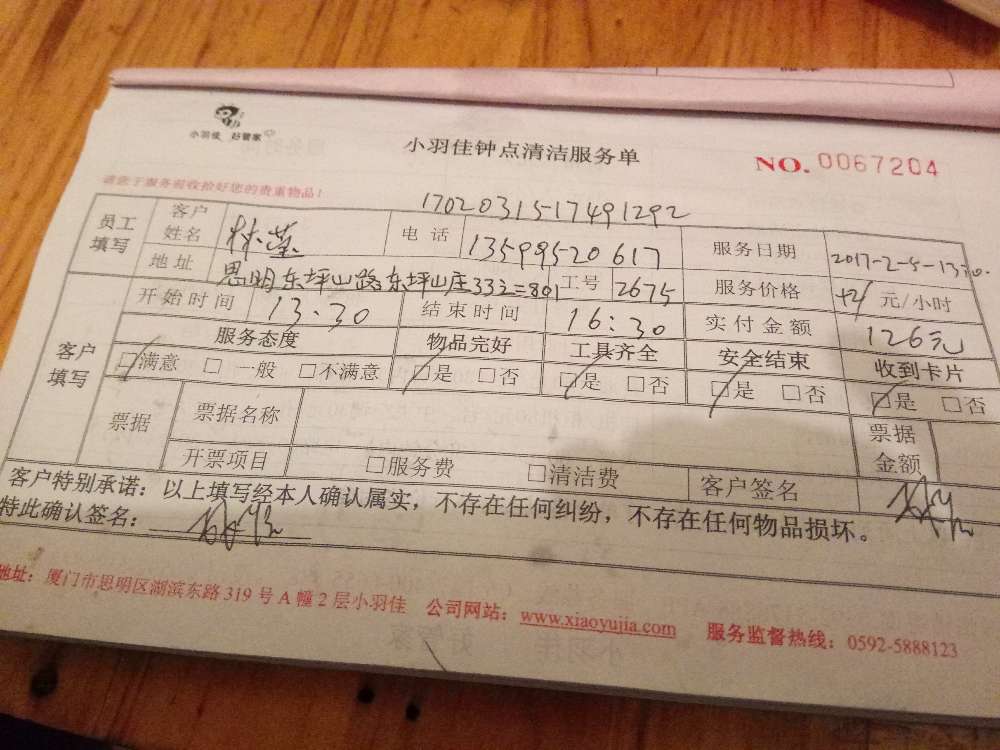 小羽佳 好管家
小羽佳钟点清洁服务单
NO. 0067204
请您于服务前收拾好您的贵重物品!
17020315-17491292
员工填写 客户姓名 林 电话 13599520617 服务日期 2017-2-5-13:30
地址 思明东坪山路东坪山庄332=801 工号 2675 服务价格 42 元/小时
开始时间 13.30 结束时间 16:30 实付金额 126元
客户填写 服务态度 物品完好 工具齐全 安全结束 收到卡片
□满意 □一般 □不满意 □是 □否 □是 □否 □是 □否 □是 □否
票据 票据名称 票据金额
开票项目 □服务费 □清洁费 客户签名
客户特别承诺：以上填写经本人确认属实，不存在任何纠纷，不存在任何物品损坏。
特此确认签名：
地址：厦门市思明区湖滨东路 319 号 A 幢 2 层小羽佳 公司网站：www.xiaoyujia.com 服务监督热线：0592-5888123